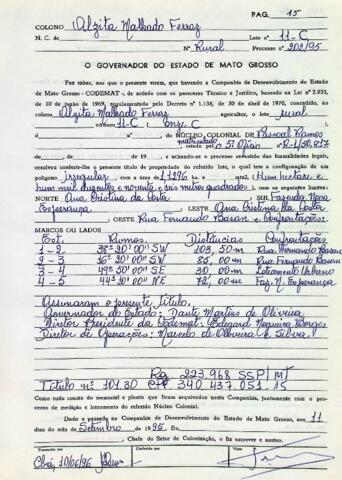 PAG. 15
COLONO Alzita Malhado Ferraz
N. C. de Lote nº 11-C
Nº Rural Processo nº 202/95
O GOVERNADOR DO ESTADO DE MATO GROSSO
Faz saber, aos que o presente virem, que havendo a Companhia de Desenvolvimento do Estado
de Mato Grosso - CODEMAT-, de acordo com os pareceres Técnico e Jurídico, baseado na Lei nº 2.933,
de 10 de junho de 1969, regulamentado pelo Decreto nº 1.138, de 30 de abril de 1970, concedido, ao
colono Alzita Malhado Ferraz agricultor, o lote rural
número 11-C, (onze C
) do NÚCLEO COLONIAL DE Pascoal Ramos
matriculado
de 19 , e achando-se o processo revestido das formalidades legais,
resolveu conferir-lhe o presente título de propriedade do referido lote, o qual tem a configuração de um
polígono irregular com a área de 1,1296 ha. (Hum hectare e
hum mil duzentos e noventa e seis metros quadrados), com os seguintes limites:
NORTE Ana Cristina da Costa SUL Fazenda Nova
Esperança, LESTE Ana Cristina da Costa
, OESTE Rua Fernando Basan e Confrontações:
MARCOS OU LADOS
Est. Rumos Distâncias Confrontações
1-2 38º 20' 00" SW 103,50 m Rua Fernando Basan
2-3 16º 20' 00" SW 85,00 m Rua Fernando Basan
3-4 49º 50' 00" SE 30,00 m Loteamento Urbano
4-5 44º 10' 00" NE 72,00 m Faz. N. Esperança
Assinaram o presente título,
Governador do Estado: Dante Martins de Oliveira
Diretor Presidente da Codemat: Edegard Nogueira Borges
Diretor de Operações: Marcelo de Oliveira e Silva
Rg 223.968 SSP/MT
Título nº 10180 CPF 340.437.051.15
Tudo como consta do memorial e planta que ficam arquivados nesta Companhia, juntamente com o pro-
cesso de medição e loteamento do referido Núcleo Colonial.
Dado e passado na Companhia de Desenvolvimento do Estado de Mato Grosso, aos 11
dias do mês de Setembro de 1995. Eu,
, Chefe do Setor de Colonização, o fiz escrever e assino.
Transcrito por Conferido por Visto
Cbá, 10/06/96